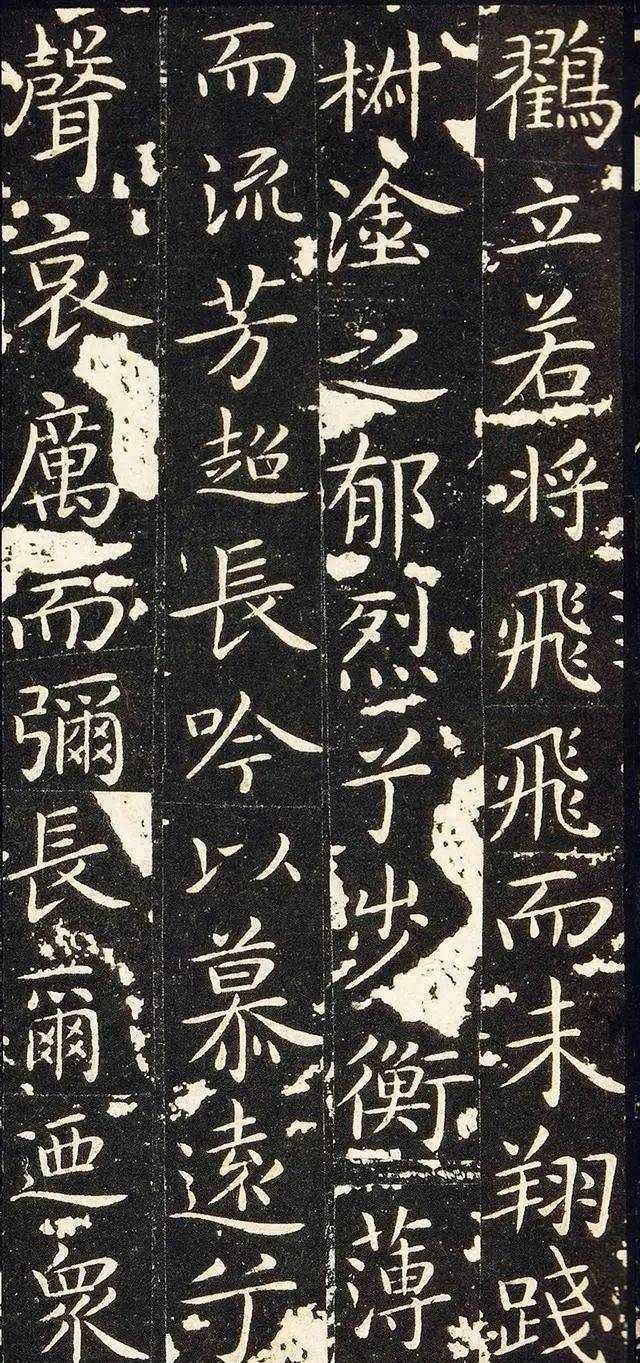 鶴立若将飛飛而未翔踐
椒塗之郁烈兮步衡薄
而流芳超長吟以慕遠兮
聲哀厲而彌長爾迺眾